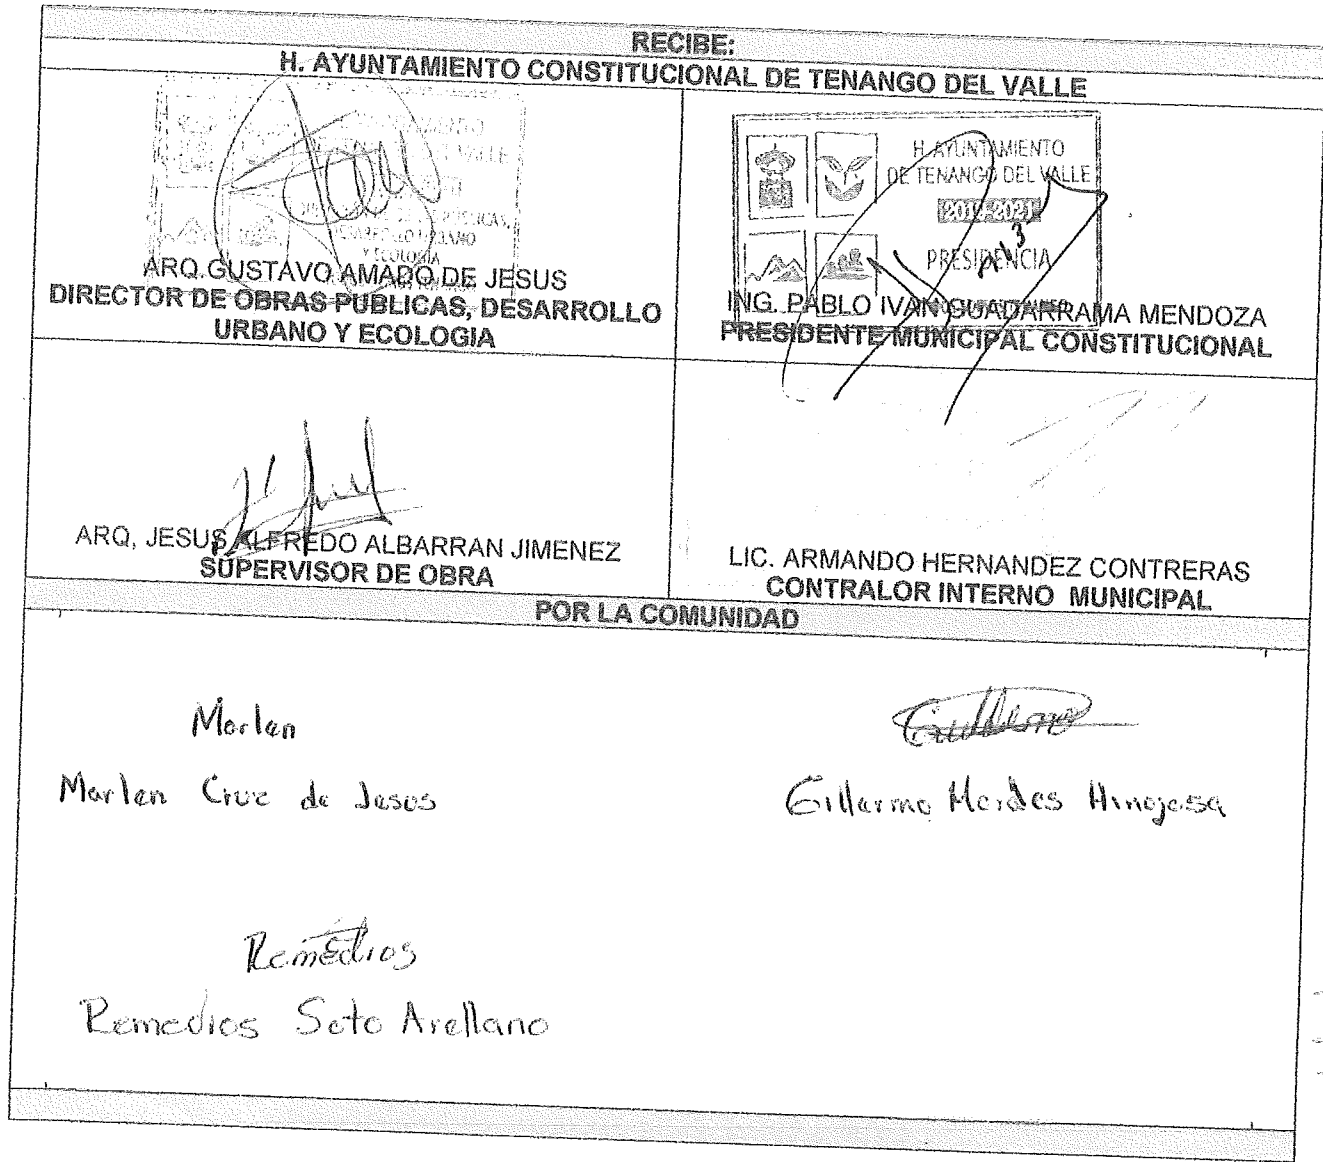 RECIBE:
H. AYUNTAMIENTO CONSTITUCIONAL DE TENANGO DEL VALLE
VALLE
DESARROLLO URBANO
Y ECOLOGÍA
ARQ.GUSTAVO AMADO DE JESUS
DIRECTOR DE OBRAS PUBLICAS, DESARROLLO
URBANO Y ECOLOGIA
H. AYUNTAMIENTO
DE TENANGO DEL VALLE
2019-2021
PRESIDENCIA
ING. PABLO IVAN GUADARRAMA MENDOZA
PRESIDENTE MUNICIPAL CONSTITUCIONAL
ARQ, JESUS ALFREDO ALBARRAN JIMENEZ
SUPERVISOR DE OBRA
LIC. ARMANDO HERNANDEZ CONTRERAS
CONTRALOR INTERNO MUNICIPAL
POR LA COMUNIDAD
Marlen
Marlen Cruz de Jesus
Guillermo
Gillermo Hinojosa
Remedios
Remedios Soto Arellano